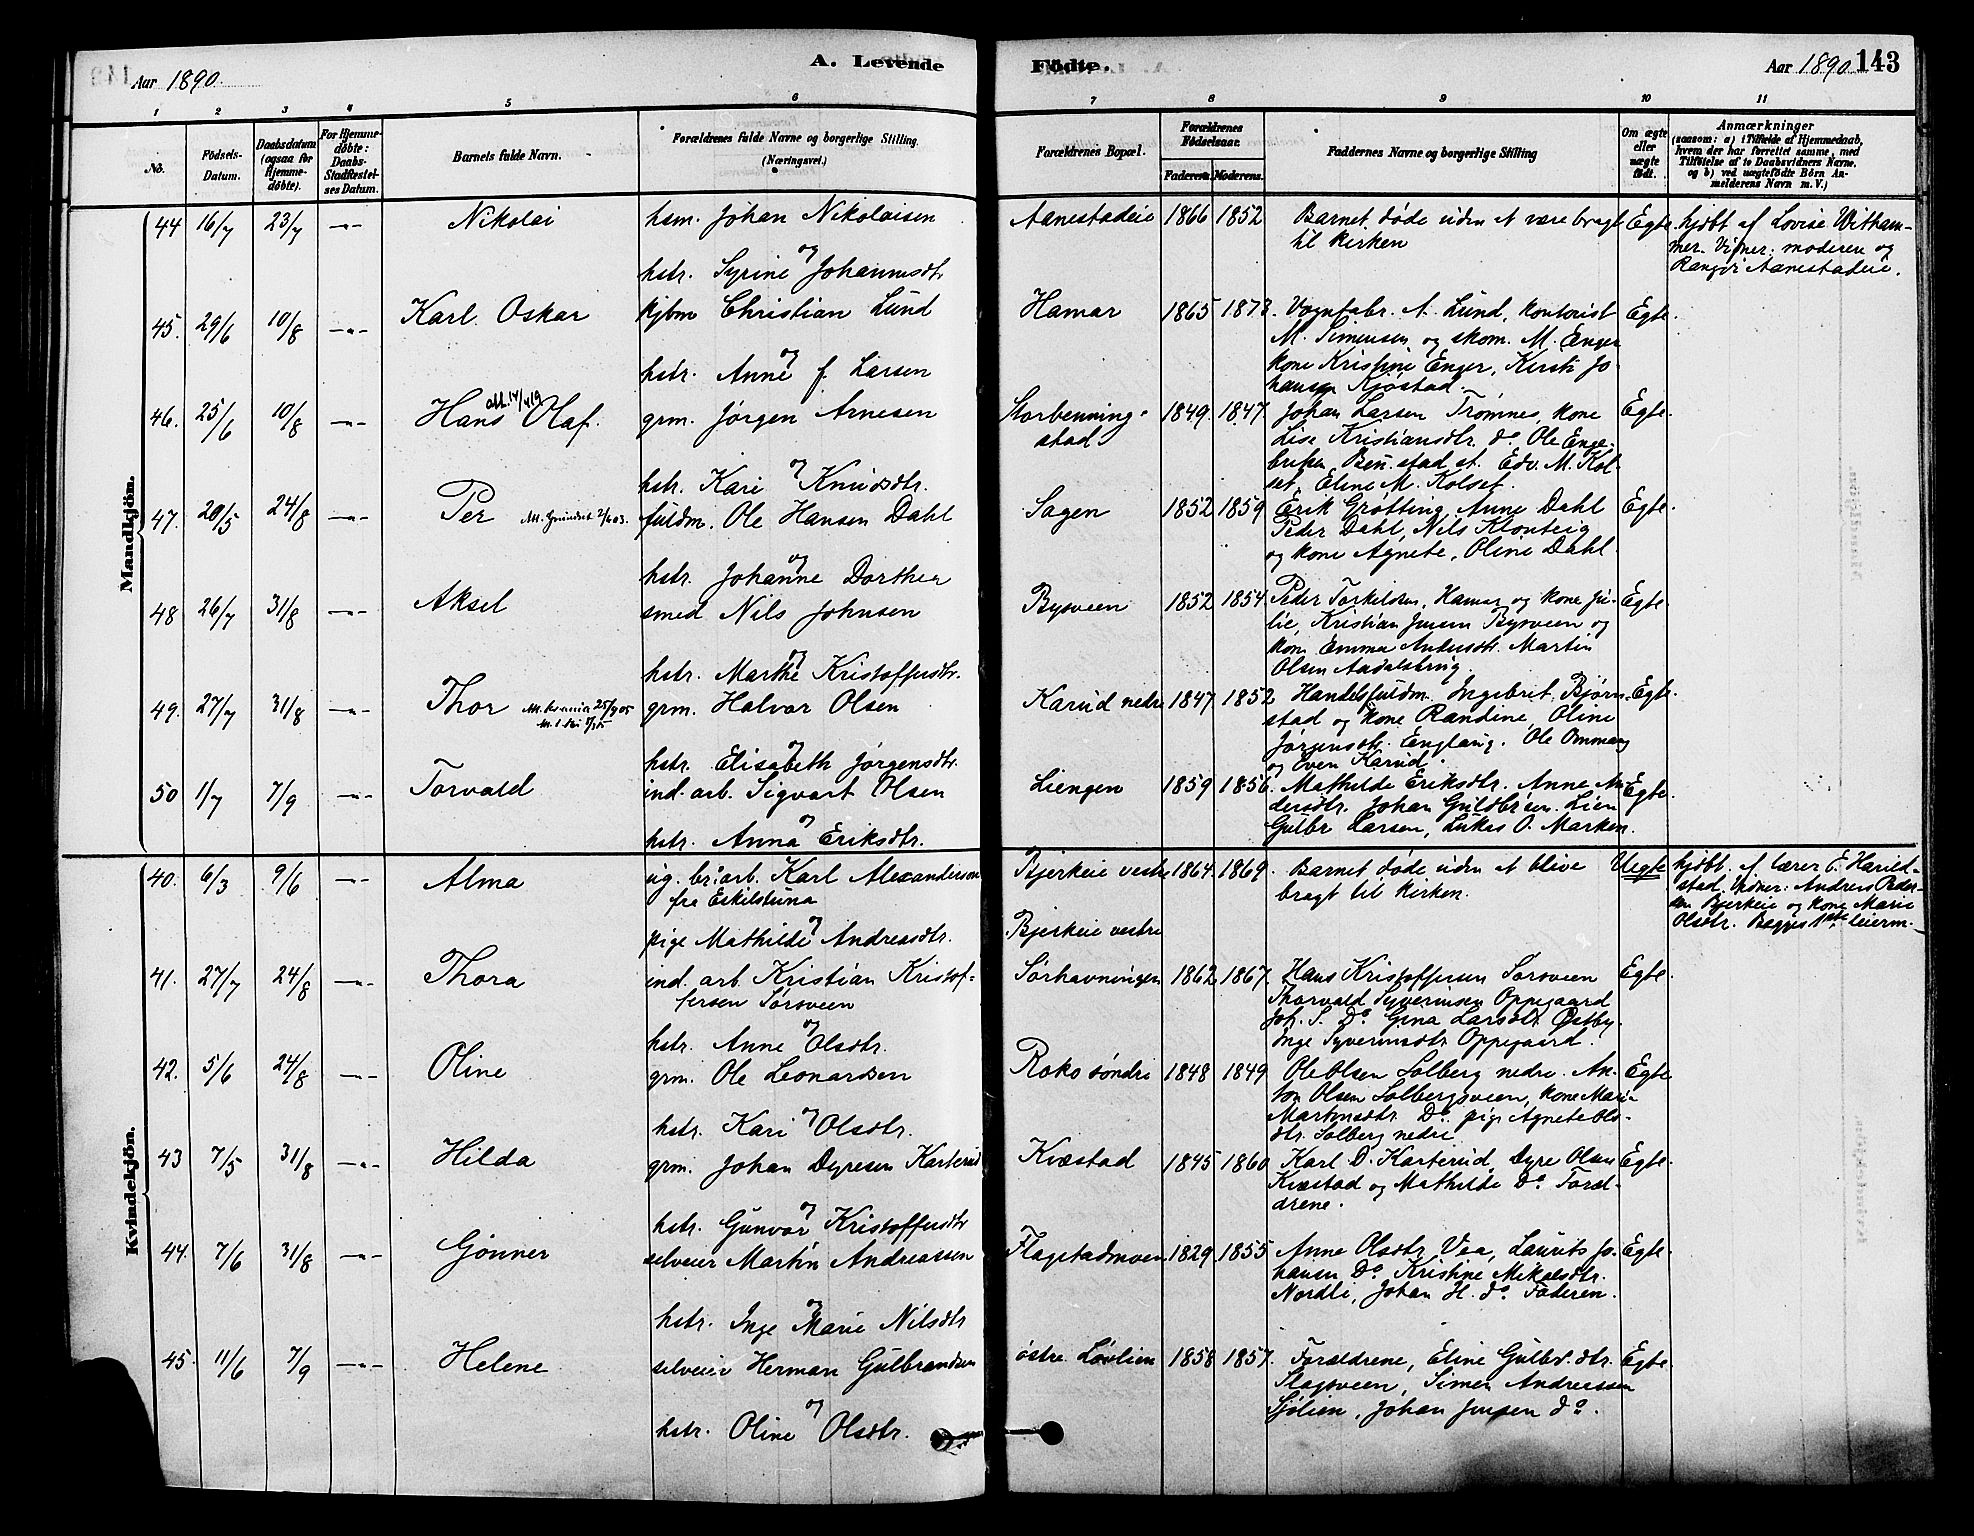 Aar 1890.
A. Levende
Födte.
Aar 1890. 143
1 2 3 4 5 6 7 8 9 10 11
No.
Födsels-
Datum.
Daabsdatum
(ogsaa for
Hjemme-
döbte).
For Hjemme-
döbte:
Daabs-
Stadfæstel-
ses Datum.
Barnets fulde Navn.
Forældrenes fulde Navne og borgerlige Stilling.
(Næringsvei.)
Forældrenes Bopæl.
Forældrenes
Födselsaar.
Faderens. Moderens.
Faddernes Navne og borgerlige Stilling
Om ægte
eller
uægte
födt.
Anmærkninger
(saasom: a) i Tilfælde af Hjemmedaab,
hvem der har forrettet samme, med
Tilföielse af to Daabsvidners Navne,
og b) ved uægtefödte Börn An-
melderens Navn m. V.)
Mandkjön.
44 16/7 23/7 -"- Nikolai hsm. Johan Nikolaisen
og
hstr. Syrine Johannesdtr
Aanestadeie 1866 1852 Barnet døde uden at være bragt
til kirken
Egte. hjdbt af Lovise Witham-
mer. Vidner: moderen og
Aanestadeie.
45. 29/6 10/8 -"- Karl Oskar kjbm Christian Lund
og
hstr. Anne f. Larsen
Hamar 1865 1873. Vognfabr. A. Lund, kontorist
M. Simensen og skom. M. Enger
kone Kristine Enger, Kersti Jo-
hansen Kjøstad.
Egte.
46. 25/6 10/8 -"- Hans Olaf. grm. Jørgen Arnesen
og
hstr. Kari Knudsdtr.
Storbenning-
stad. 1849. 1847. Johan Larsen Trømnes, kone
Lise Kristiansdtr. do. Ole Enge-
briksen, Ben.stad st. Edv. M. Kol-
set, Eline M. Kolset.
Egte
47. 20/5 24/8 -"- Per Att. Grundset 2/4 03. fuldm. Ole Hansen Dahl
og
hstr. Johanne Dorthea
Sagen 1852 1859 Erik Grøtting, Anne Dahl
Peder Dahl, Nils Klonteig
og kone Agnete, Oline Dahl.
Egte.
48 26/7 31/8 -"- Aksel smed Nils Johnsen
og
hstr. Marthe Kristoffersdtr.
Bysveen 1852 1854. Peder Torkildsen, Hamar og kone Ju-
lie, Kristian Jensen Bysveen og
kone Emma Andersdtr. Martin
Olsen Aadalsbrug.
Egte.
49. 27/7 31/8 -"- Thor Att. Krania 25/9 05 grm. Halvor Olsen
og
hstr. Elisabeth Jørgensdtr.
Karud nedre 1847 1852 Handelsfuldm. Ingebret Bjørn-
stad og kone Randine, Oline
Jørgensdtr. Englaug. Ole Ommang
og Even Karud.
Egte.
50 1/7 7/9 -"- Torvald ind. arb. Sigvart Olsen
og
hstr. Anna Eriksdtr.
Liengen 1859 1856. Mathilde Eriksdtr. Anne An-
dersdtr. Johan Guldbrsen. Lien
Gulbr Larsen, Lukas O. Marken.
Egte.
Kvindekjön.
40. 6/3 9/6 -"- Alma ug. br. arb. Karl Alexanderson
fra Eskilstuna
og
pige Mathilde Andreasdtr.
Bjerkeie vestre
Bjerkeie vestre 1864. 1869. Barnet døde uden at blive
bragt til kirken.
Uegte hjdbt. af lærer E. Harild-
stad. Vidner: Andreas Peder-
sen Bjerkeie og kone Marie
Olsdtr. Begges 1ste leierm.
41. 27/7 24/8 -"- Thora ind. arb. Kristian Kristof-
fersen Sørsveen
og
hstr. Anne Olsdtr.
Sørhavningen 1862 1867. Hans Kristoffersen Sørsveen
Thorvald Syverinsen Oppegaard
Joh. S. Do. Gina Larsdtr Østby.
Inge Syverinsdtr Oppegaard.
Egte.
42. 5/6 24/8 -"- Oline grm. Ole Leonardsen
og
hstr. Kari Olsdtr.
Roko søndre 1848 1849 Ole Olsen Solberg nedre. An-
ton Olsen Solbergsveen, kone Mari-
Martinsdtr. Do. pige Agnete Ols-
dtr. Solberg nedre
Egte
43 7/5 31/8 -"- Hilda grm. Johan Dyresen Karterud
og
hstr. Gunvor Kristoffersdtr
Kvæstad 1845 1860 Karl D. Karterud, Dyre Olsen
Kvæstad og Mathilde Do. Foræl-
drene.
Egte.
44. 7/6 31/8 -"- Gjønner selveier Martin Andreassen
og
hstr. Inge Marie Nilsdtr
Flagstadmoen 1829. 1855 Anne Olsdtr Vea, Laurits Jo-
hansen Do. Kristine Mikalsdtr.
Nordli, Johan H. do. Faderen.
Egte.
45. 11/6 7/9 -"- Helene selveier Herman Gulbrandsen
og
hstr. Oline Olsdtr.
østre Løvlien 1858 1857. Forældrene, Eline Gulbr.dtr.
Slagsveen, Simen Andreassen
Sjølien, Johan Jensen do.
Egte.